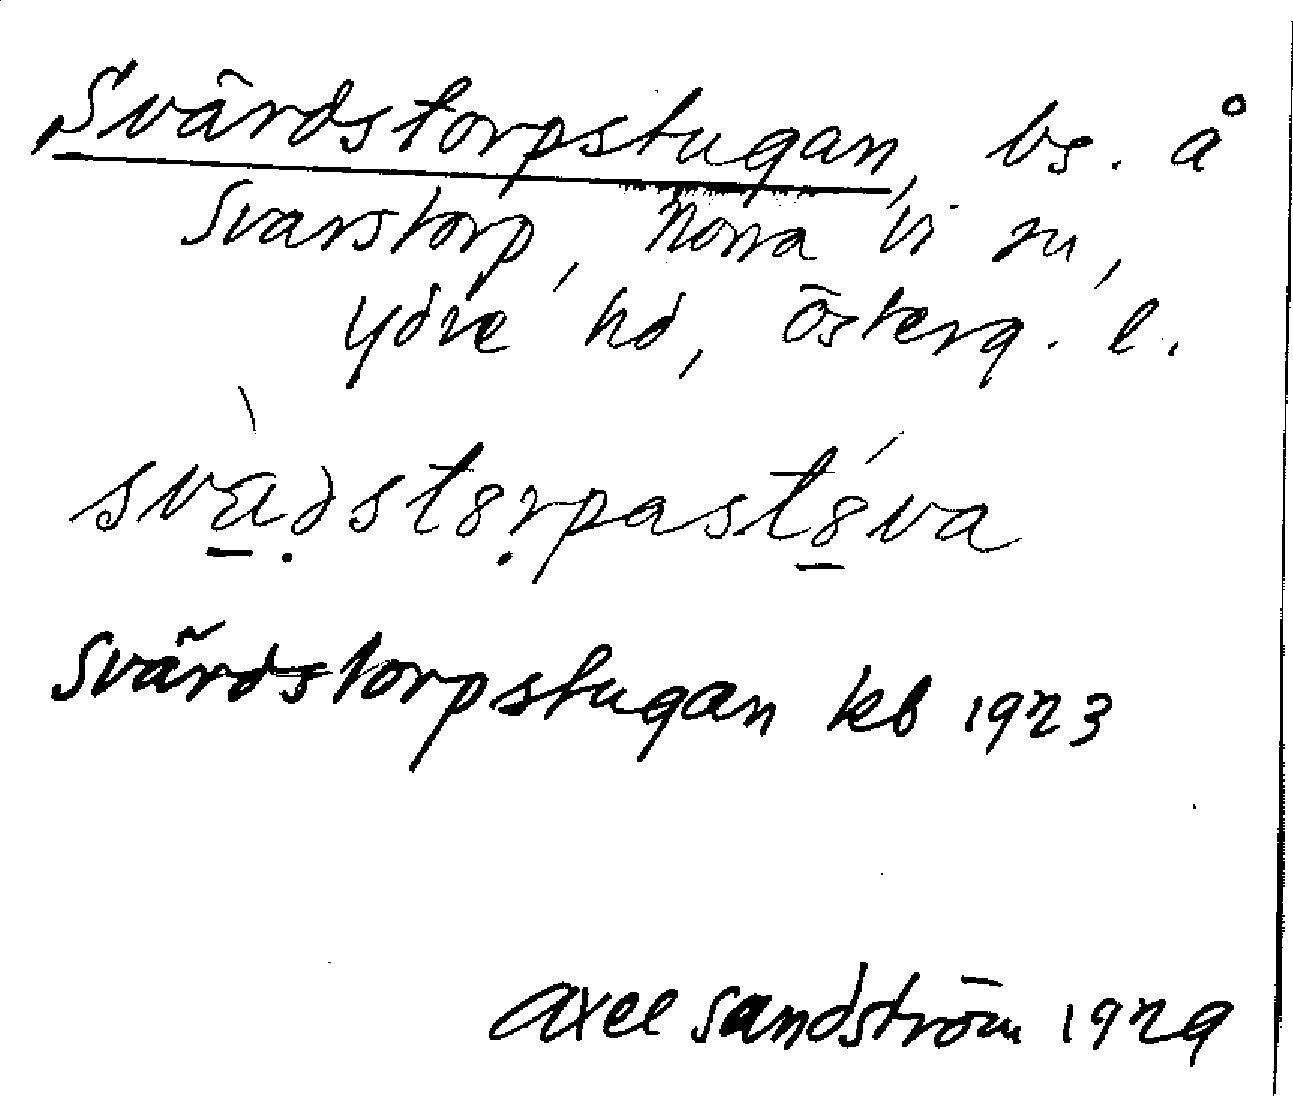 Svärdstorpstugan, bs. å
Svarstorp, Norra Vi sn,
Ydre hd, Österg. l.
svàdstorpastóva
Svärdstorpstugan kb 1923
Axel Sandström 1929